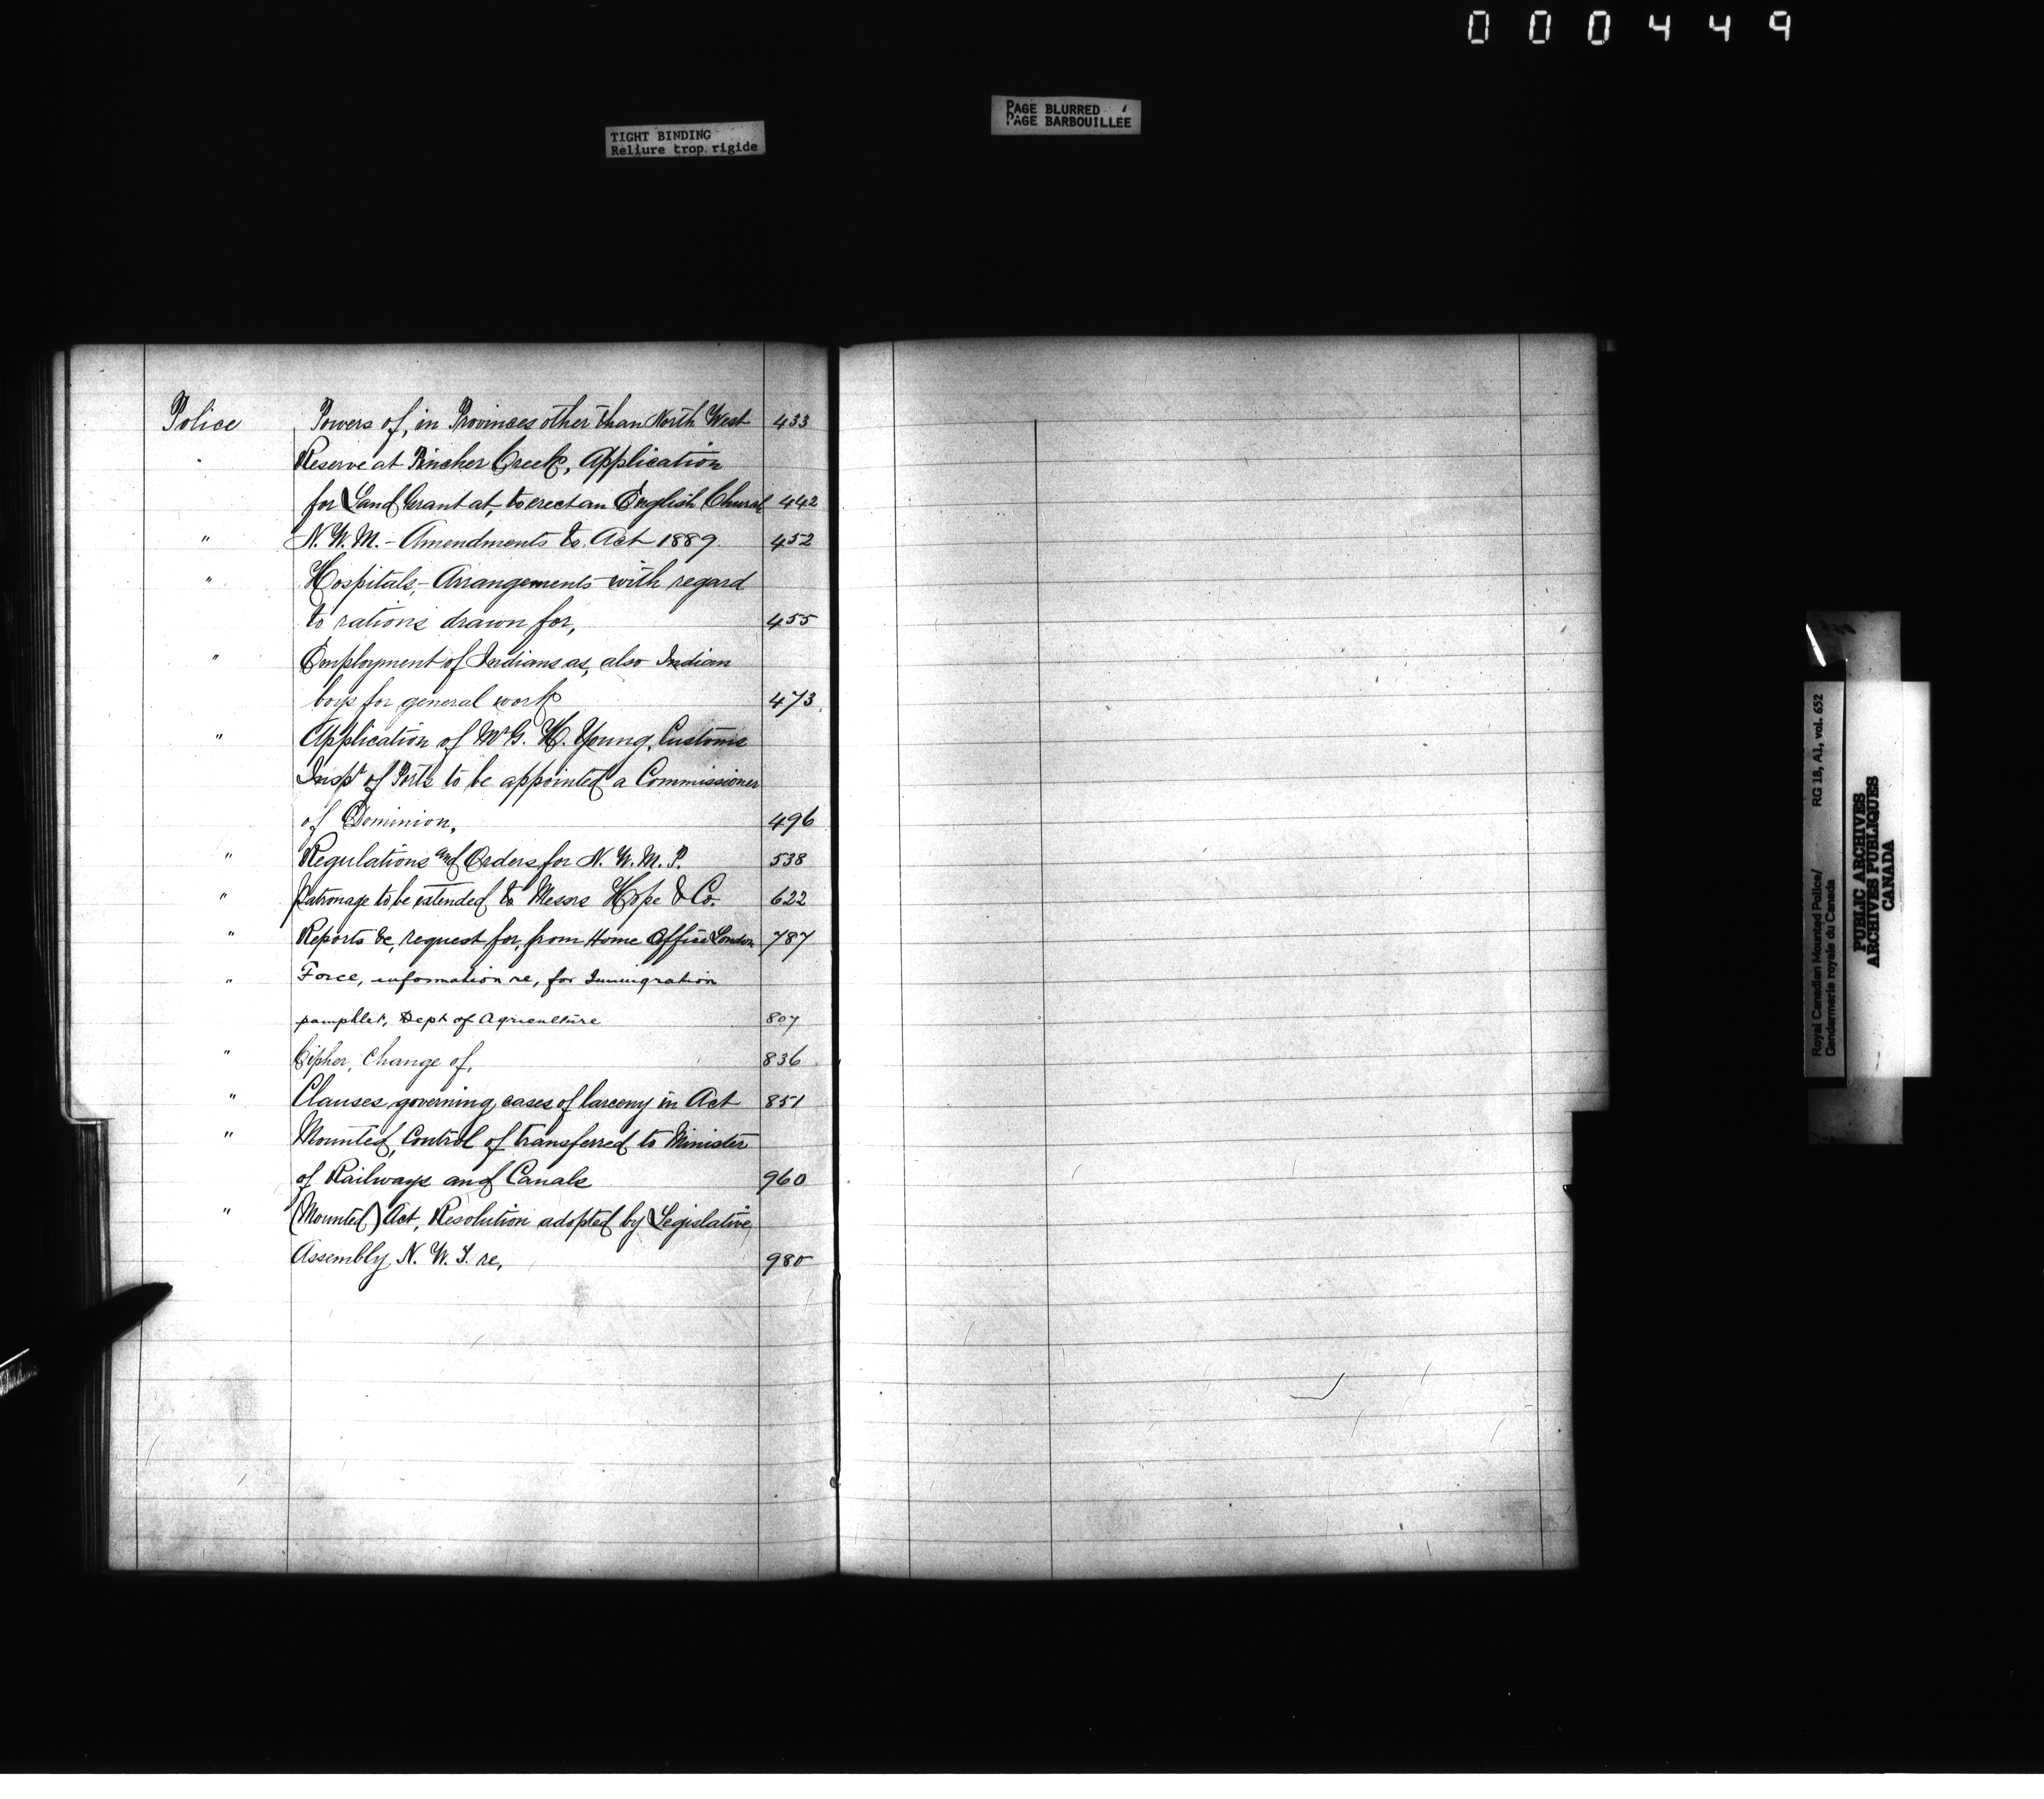 000449
TIGHT BINDING
Reliure trop rigide
PAGE BLURRED
PAGE BARBOUILLÉE
Police Powers of, in Provinces other than North West 433
" Reserve at Pincher Creek, Application
for Land Grant at, to erect an English Church 442
" N. W. M. - Amendments to Act 1889. 452
" Hospitals, - Arrangements with regard
to rations drawn for, 455
" Employment of Indians as, also Indian
boys for general work 473
" Application of Mr G. H. Young, Customs
Inspr of Ports to be appointed a Commissioner
of Dominion, 496
" Regulations and Orders for N. W. M. P. 538
" Patronage to be extended to Messrs Hope & Co. 622
" Reports &c, request for, from Home Office London 787
" Force, information re, for Immigration
pamphlet, Dept of Agriculture 807
" Cipher, Change of, 836
" Clauses governing cases of larceny in Act 851
" Mounted, Control of transferred to Minister
of Railways and Canals 960
" (Mounted) Act, Resolution adopted by Legislative
Assembly, N. W. T. re, 980
Royal Canadian Mounted Police/ RG 18, A1, vol. 652
Gendarmerie royale du Canada
PUBLIC ARCHIVES
ARCHIVES PUBLIQUES
CANADA